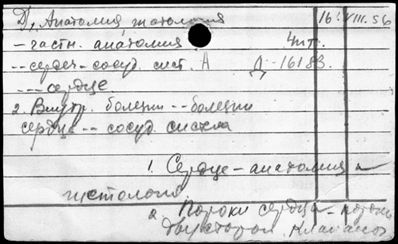 Д, Анатомия гистология 16. VIII. 56
- частн. анатомия 4шт.
-- сердеч - сосуд. сист. А Д-16183
--- сердце
2. Внутр. болезни -- болезни
сердца -- сосуд. система
1. Сердце - анатомия и
гистология
2. Пороки сердца - пороки
двустворч. клапанов